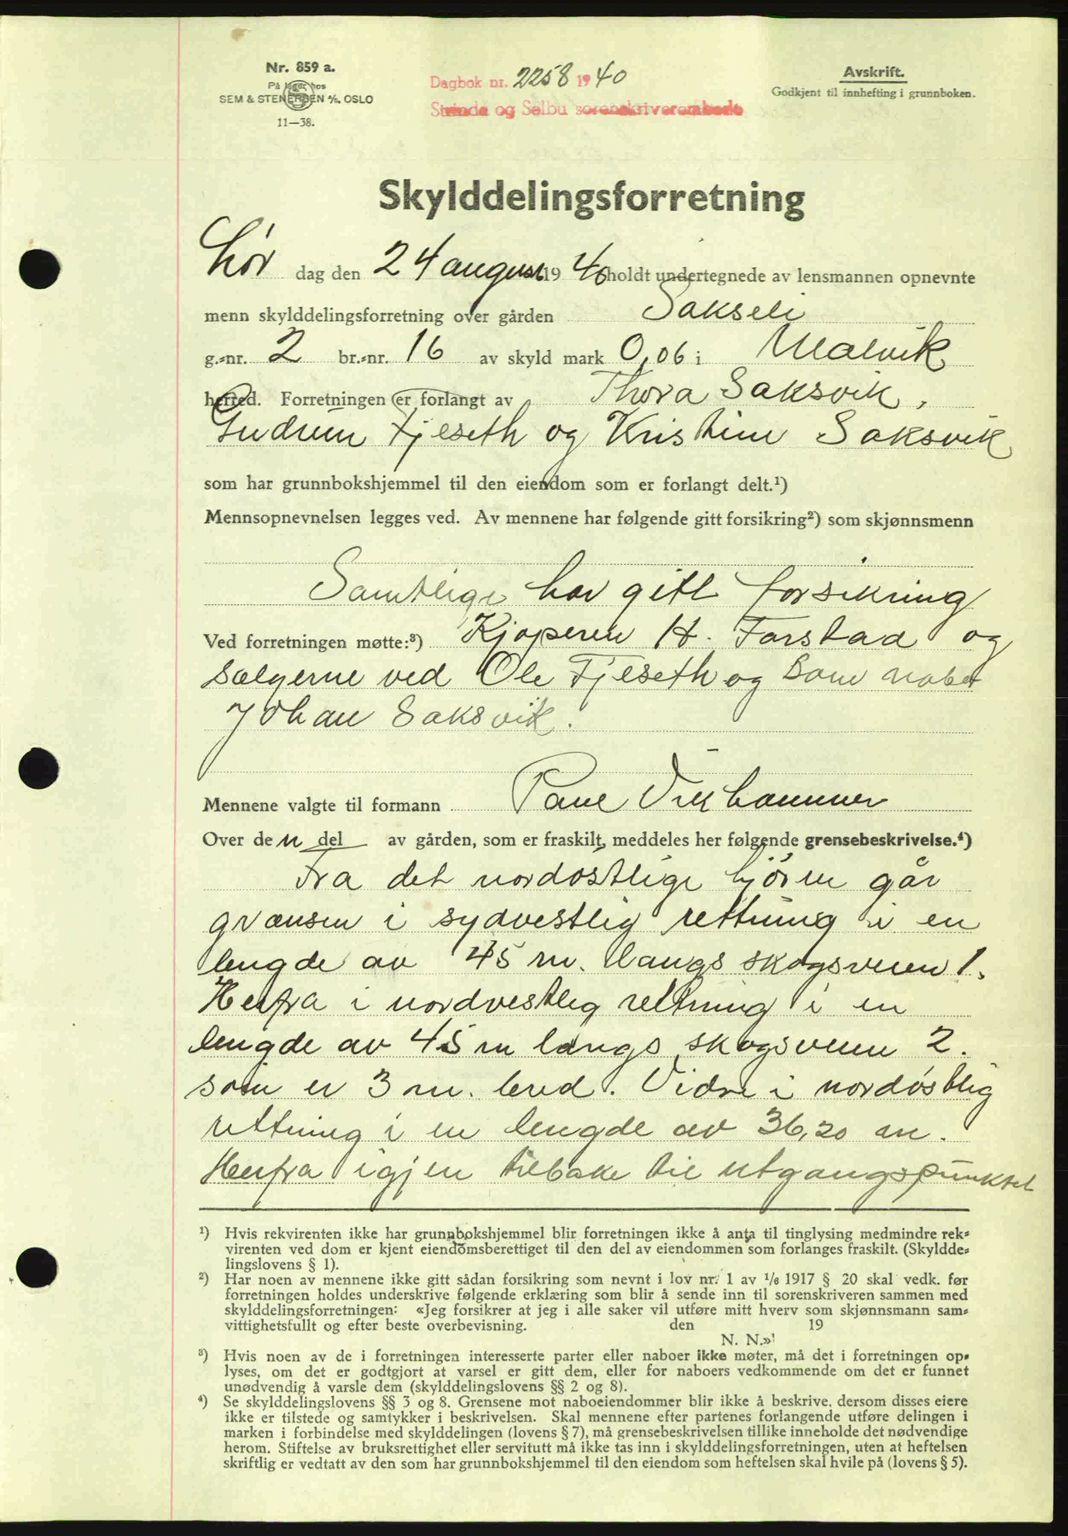 Nr. 859 a.
På lager hos
SEM & STENERSEN A/S, OSLO
11—38.
Dagbok nr. 2258 1940
Strinda og Selbu sorenskriverembede
Avskrift.
Godkjent til innhefting i grunnboken.
Skylddelingsforretning
Lør dag den 24 august 1940 holdt undertegnede av lensmannen opnevnte
menn skylddelingsforretning over gården Sakseli
g.-nr. 2 br.-nr. 16 av skyld mark 0,06 i Malvik
herred. Forretningen er forlangt av Thora Saksvik,
Gudrun Fjeseth og Kristine Saksvik
som har grunnbokshjemmel til den eiendom som er forlangt delt.¹)
Mennsopnevnelsen legges ved. Av mennene har følgende gitt forsikring²) som skjønnsmenn
Samtlige har gitt forsikring
Ved forretningen møtte:³) Kjøperen H. Farstad og
Sælgerne ved Ole Fjeseth og Som nabo
Johan Saksvik.
Mennene valgte til formann Paul Vikhammer
Over den del av gården, som er fraskilt, meddeles her følgende grensebeskrivelse.⁴)
Fra det nordøstlige hjørne går
grænsen i sydvestlig rettning i en
lengde av 45 m. langs skogsveien 1.
Herfra i nordvestlig rettning i en
lengde av 45 m langs skogsveien 2.
som er 3 m. bred. Vidre i nordøstlig
rettning i en lengde av 36,20 m.
Herfra igjen tilbake til utgangspunktet
¹) Hvis rekvirenten ikke har grunnbokshjemmel blir forretningen ikke å anta til tinglysing medmindre rek-
virenten ved dom er kjent eiendomsberettiget til den del av eiendommen som forlanges fraskilt. (Skyldde-
lingslovens § 1).
²) Har noen av mennene ikke gitt sådan forsikring som nevnt i lov nr. 1 av 1/6 1917 § 20 skal vedk. før
forretningen holdes underskrive følgende erklæring som blir å sende inn til sorenskriveren sammen med
skylddelingsforretningen: «Jeg forsikrer at jeg i alle saker vil utføre mitt hverv som skjønnsmann sam-
vittighetsfullt og efter beste overbevisning. den 19
N. N.»
³) Hvis noen av de i forretningen interesserte parter eller naboer ikke møter, må det i forretningen op-
lyses, om det er godtgjort at varsel er gitt dem, eller for naboers vedkommende om det er funnet
unødvendig å varsle dem (skylddelingslovens §§ 2 og 8).
⁴) Se skylddelingslovens §§ 3 og 8. Grensene mot naboeiendommer blir ikke å beskrive, dersom disses eiere
ikke er tilstede og samtykker i beskrivelsen. Skal mennene efter partenes forlangende utføre delingen i
marken i forbindelse med skylddelingen (lovens § 7), må grensebeskrivelsen tillike inneholde det nødvendige
herom. Stiftelse av bruksrettighet eller servitutt må ikke tas inn i skylddelingsforretningen, uten at heftelsen
skriftlig er vedtatt av den som har grunnbokshjemmel til den eiendom som heftelsen skal hvile på (lovens § 5).